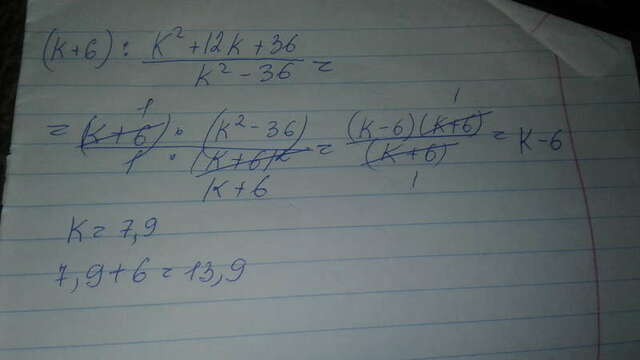 (k+6) : k²+12k+36 / k²-36 =
= (k+6) · (k²-36) / 1 · (k+6)² = (k-6)(k+6) / (k+6) = k-6
k+6
k = 7,9
7,9+6 = 13,9